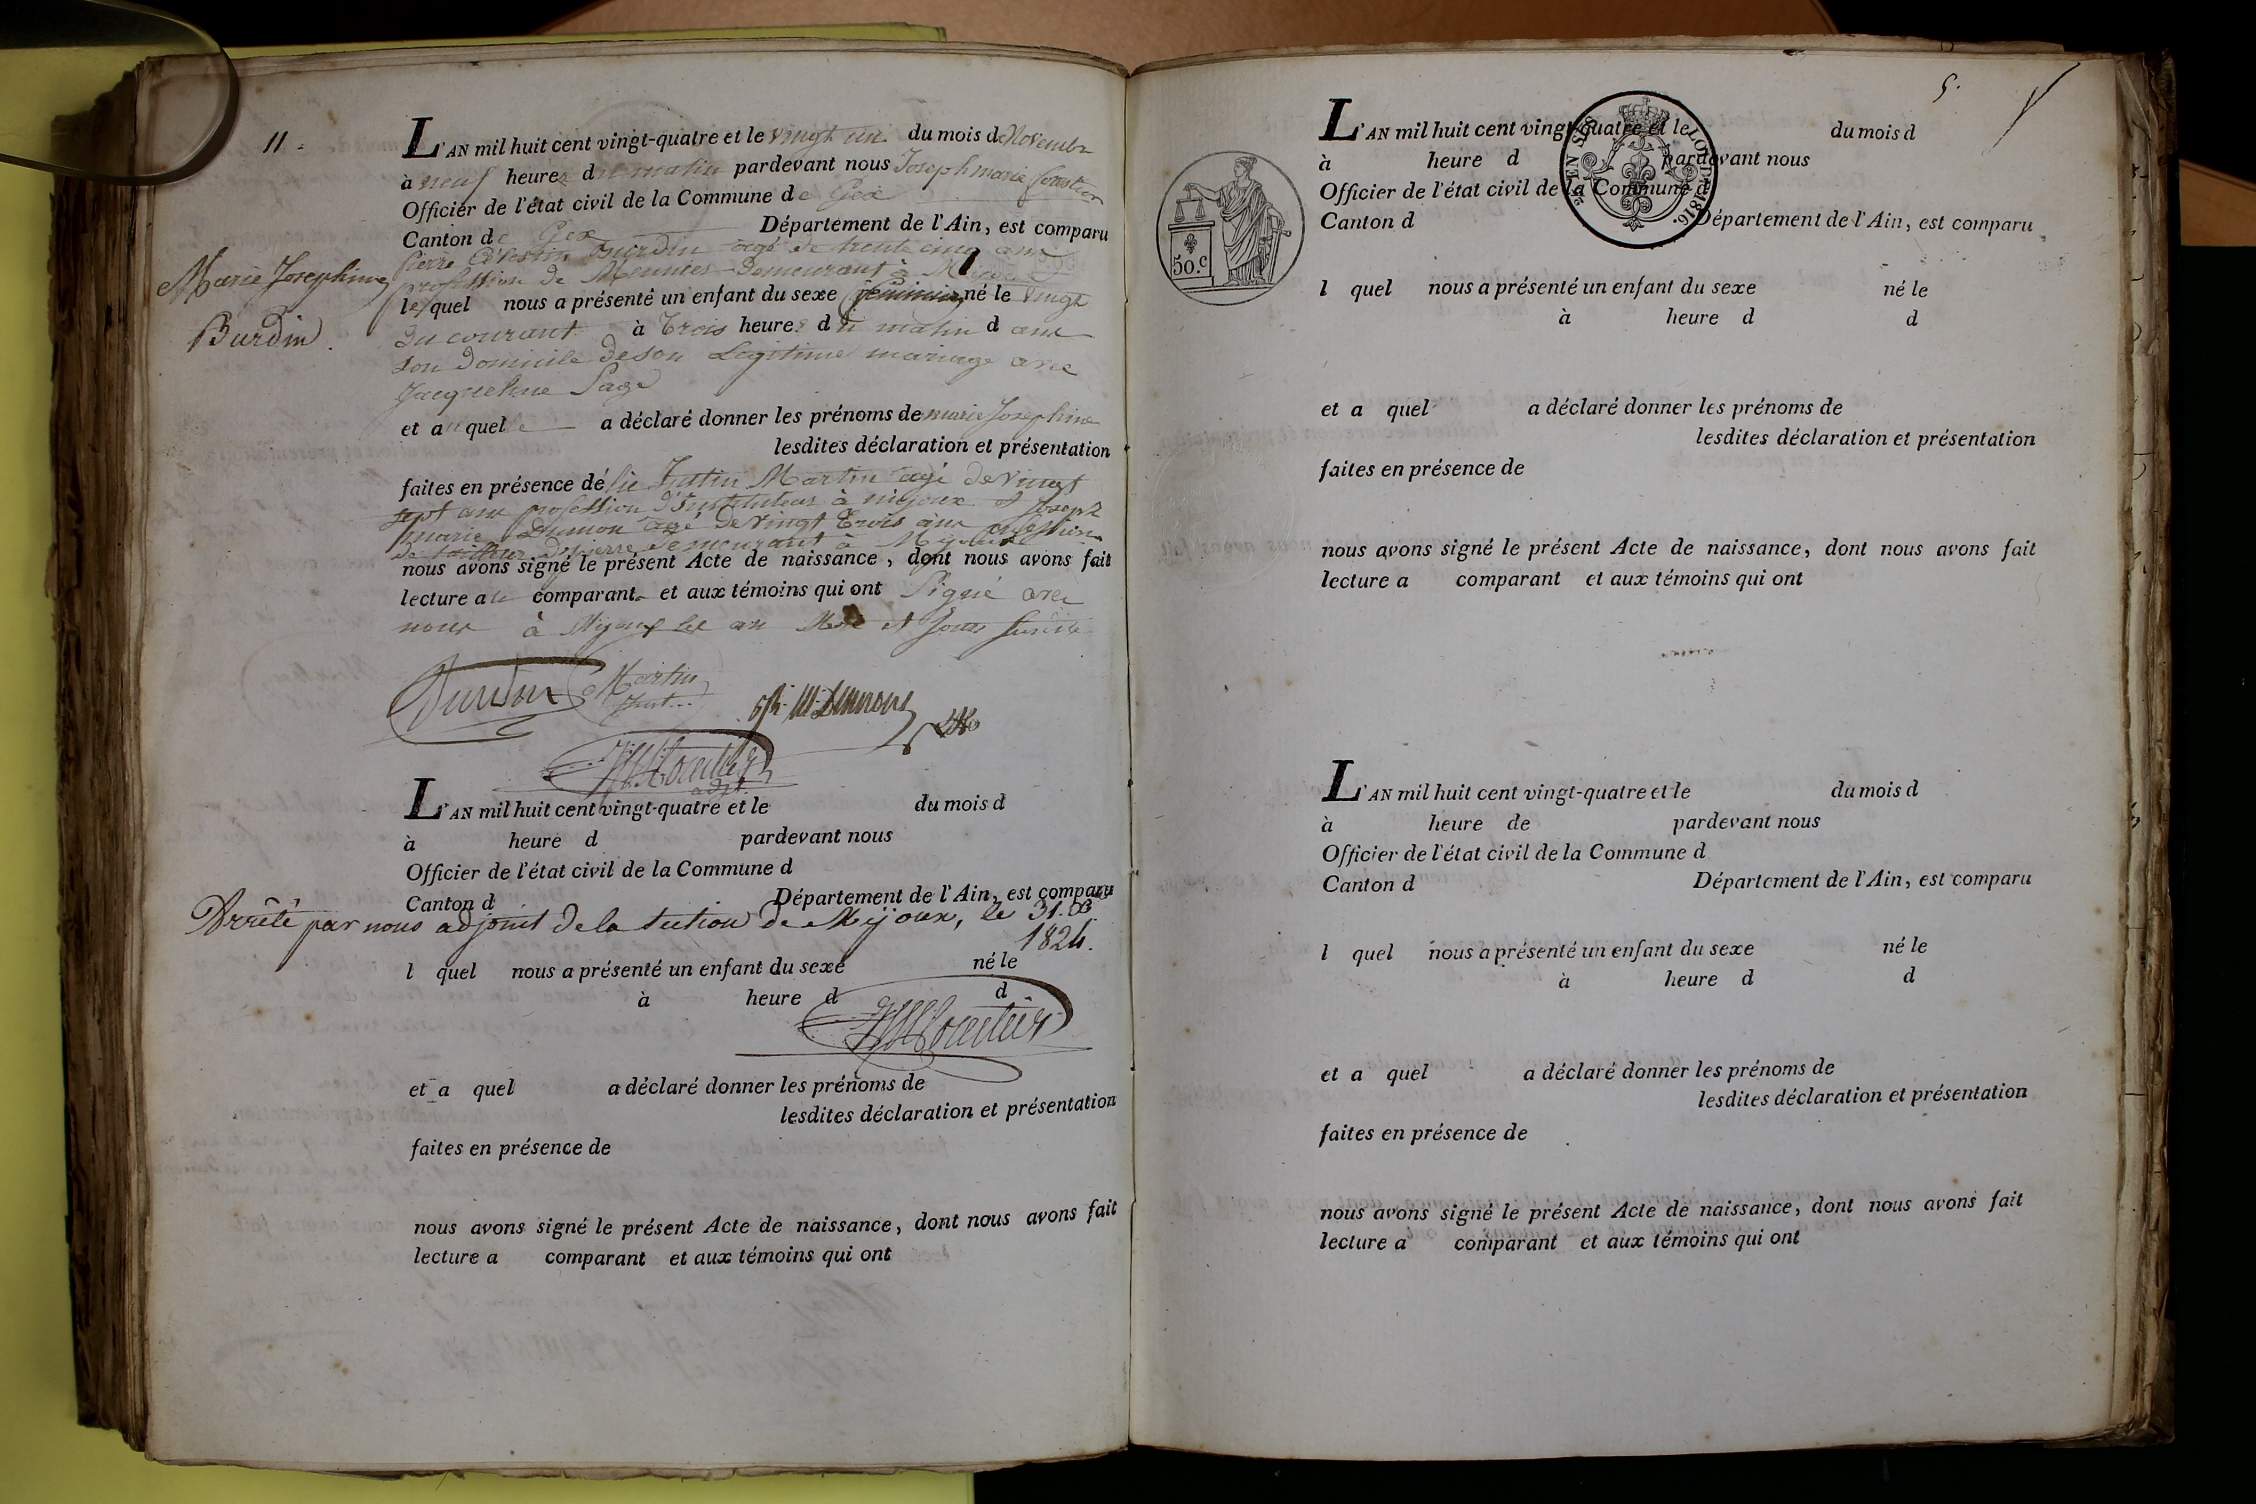 11 =
L'AN mil huit cent vingt-quatre et le vingt un du mois de Novembre
à neuf heures du matin pardevant nous Joseph marie
Officier de l'état civil de la Commune de Gex
Canton de Gex Département de l'Ain, est comparu
pierre Célestin Burdin agé de trente cinq ans
profession de demeurant à
Marie Josephine
Burdin.
lequel nous a présenté un enfant du sexe féminin né le vingt
du courant à trois heures du matin d ans
son domicile de son Légitime mariage avec
Jacqueline Page
et au quel a déclaré donner les prénoms de marie Josephine
lesdites déclaration et présentation
faites en présence de Martin agé de vingt
sept ans profession d'Instituteur à mijoux et Joseph
marie agé de vingt trois ans profession
de demeurant à Mijoux
nous avons signé le présent Acte de naissance, dont nous avons fait
lecture au comparant et aux témoins qui ont Signé avec
nous à Mijoux les an Mois et Jour
Burdin Martin
adjt.
L'AN mil huit cent vingt-quatre et le du mois d
à heure d pardevant nous
Officier de l'état civil de la Commune d
Canton d Département de l'Ain, est comparu
Arrêté par nous adjoint de la section de Mijoux, le 31.
1824.
l quel nous a présenté un enfant du sexe né le
à heure d d
et a quel a déclaré donner les prénoms de
lesdites déclaration et présentation
faites en présence de
nous avons signé le présent Acte de naissance, dont nous avons fait
lecture a comparant et aux témoins qui ont
5.
L'AN mil huit cent vingt-quatre et le du mois d
à heure d pardevant nous
Officier de l'état civil de la Commune d
Canton d Département de l'Ain, est comparu
50.c
1816.
l quel nous a présenté un enfant du sexe né le
à heure d d
et a quel a déclaré donner les prénoms de
lesdites déclaration et présentation
faites en présence de
nous avons signé le présent Acte de naissance, dont nous avons fait
lecture a comparant et aux témoins qui ont
L'AN mil huit cent vingt-quatre et le du mois d
à heure de pardevant nous
Officier de l'état civil de la Commune d
Canton d Département de l'Ain, est comparu
l quel nous a présenté un enfant du sexe né le
à heure d d
et a quel a déclaré donner les prénoms de
lesdites déclaration et présentation
faites en présence de
nous avons signé le présent Acte de naissance, dont nous avons fait
lecture a comparant et aux témoins qui ont